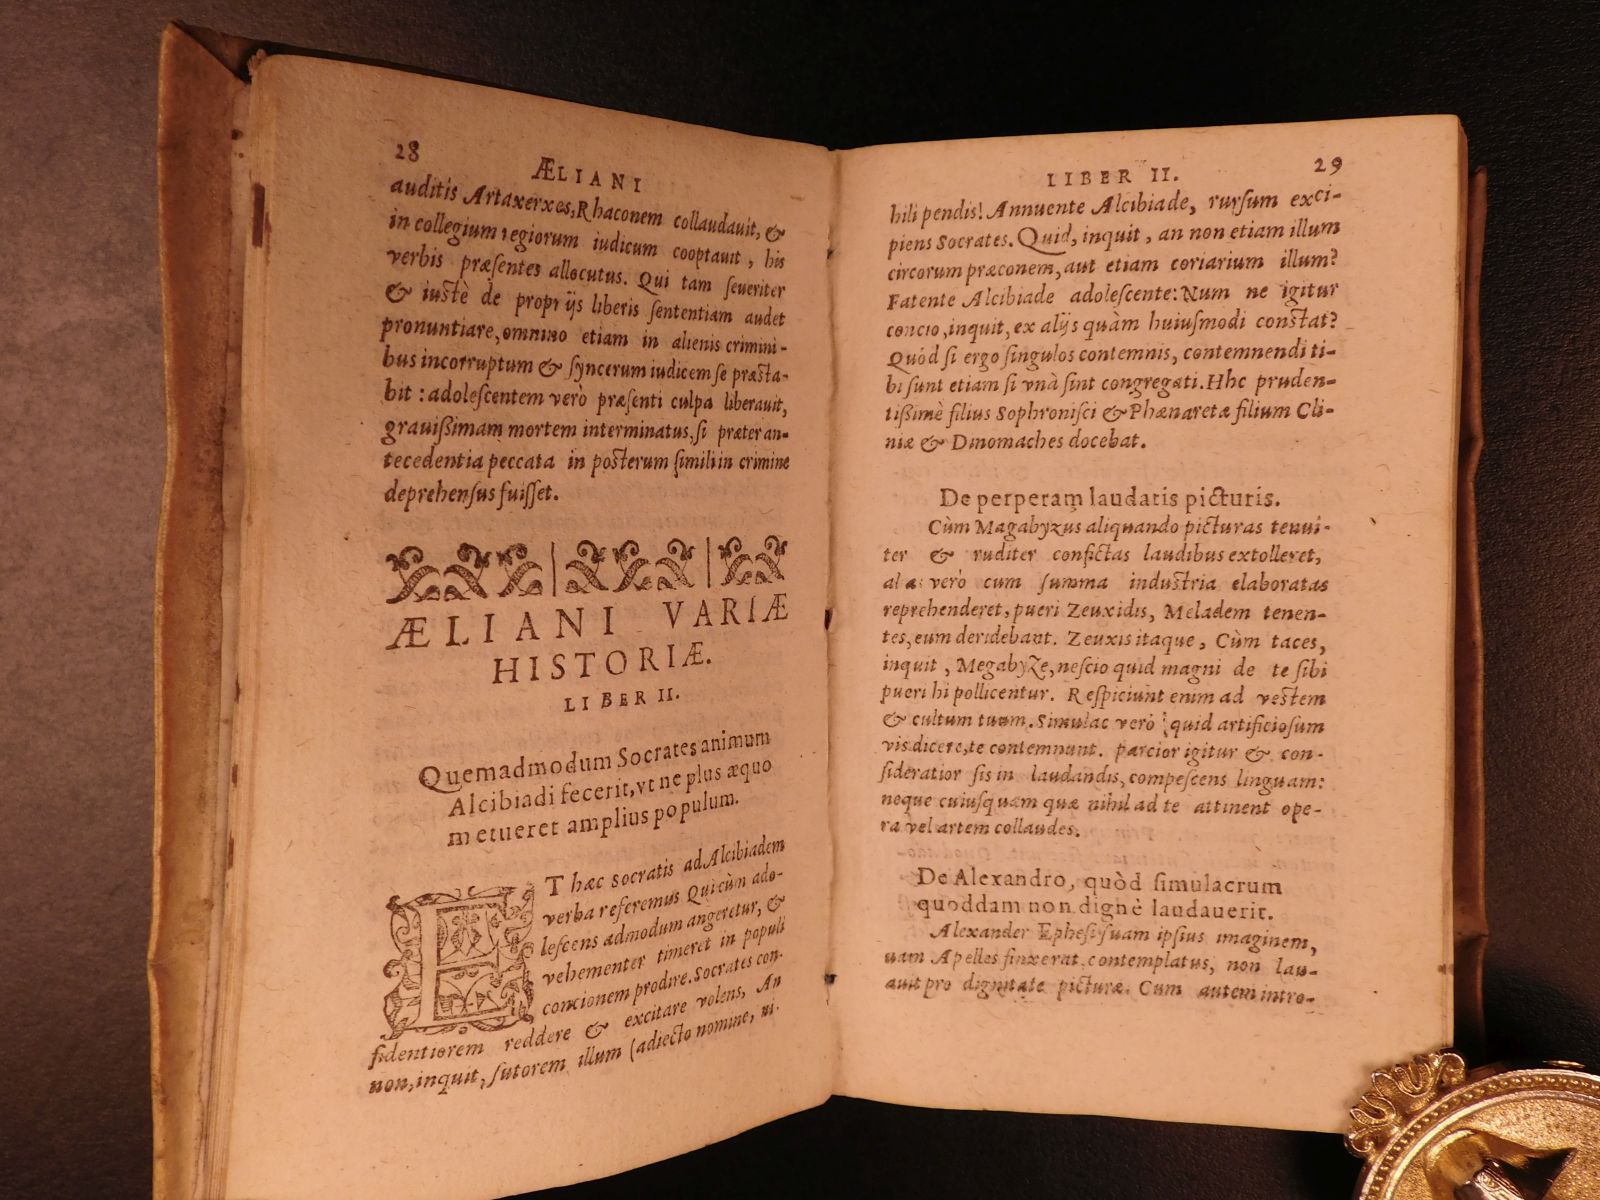 28
ÆLIANI
auditis Artaxerxes, Rhaconem collaudauit, &
in collegium regiorum iudicum cooptauit, his
verbis præsentes allocutus. Qui tam ſeueriter
& iustè de proprijs liberis ſententiam audet
pronuntiare, omnino etiam in alienis crimini-
bus incorruptum & ſyncerum iudicem ſe præsta-
bit : adoleſcentem verò præſenti culpa liberauit,
grauiſsimam mortem interminatus, ſi præter an-
tecedentia peccata in posterum ſimili in crimine
deprehenſus fuiſſet.
ÆLIANI VARIÆ
HISTORIÆ.
LIBER II.
Quemadmodum Socrates animum
Alcibiadi fecerit, vt ne plus æquo
metueret amplius populum.
ET hæc Socratis ad Alcibiadem
verba referemus Qui cùm ado-
leſcens admodum angeretur, &
vehementer timeret in populi
concionem prodire. Socrates con-
fidentiorem reddere & excitare volens, An
non, inquit, ſutorem illum (adiecto nomine, ni-
LIBER II.
29
hili pendis! Annuente Alcibiade, rurſum exci-
piens Socrates. Quid, inquit, an non etiam illum
circorum præconem, aut etiam coriarium illum?
Fatente Alcibiade adoleſcente: Num ne igitur
concio, inquit, ex alijs quàm huiuſmodi constat?
Quòd ſi ergo ſingulos contemnis, contemnendi ti-
bi ſunt etiam ſi vnà ſint congregati. Hhc pruden-
tiſsimè filius Sophroniſci & Phænaretæ filium Cli-
niæ & Dinomaches docebat.
De perperam laudatis picturis.
Cùm Magabyzus aliquando picturas tenui-
ter & ruditer confictas laudibus extolleret,
verò cum ſumma industria elaboratas
reprehenderet, pueri Zeuxidis, Meladem tenen-
tes, eum deridebant. Zeuxis itaque, Cùm taces,
inquit, Megabyze, neſcio quid magni de te ſibi
pueri hi pollicentur. Reſpiciunt enim ad vestem
& cultum tuum. Simulac verò quid artificioſum
vis dicere, te contemnunt. parcior igitur & con-
ſideratior ſis in laudandis, compeſcens linguam:
neque cuiuſquam quæ nihil ad te attinent ope-
ra vel artem collaudes.
De Alexandro, quòd ſimulacrum
quoddam non dignè laudauerit.
Alexander Epheſi ſuam ipſius imaginem,
uam Apelles finxerat, contemplatus, non lau-
auit pro dignitate picturæ. Cum autem intro-